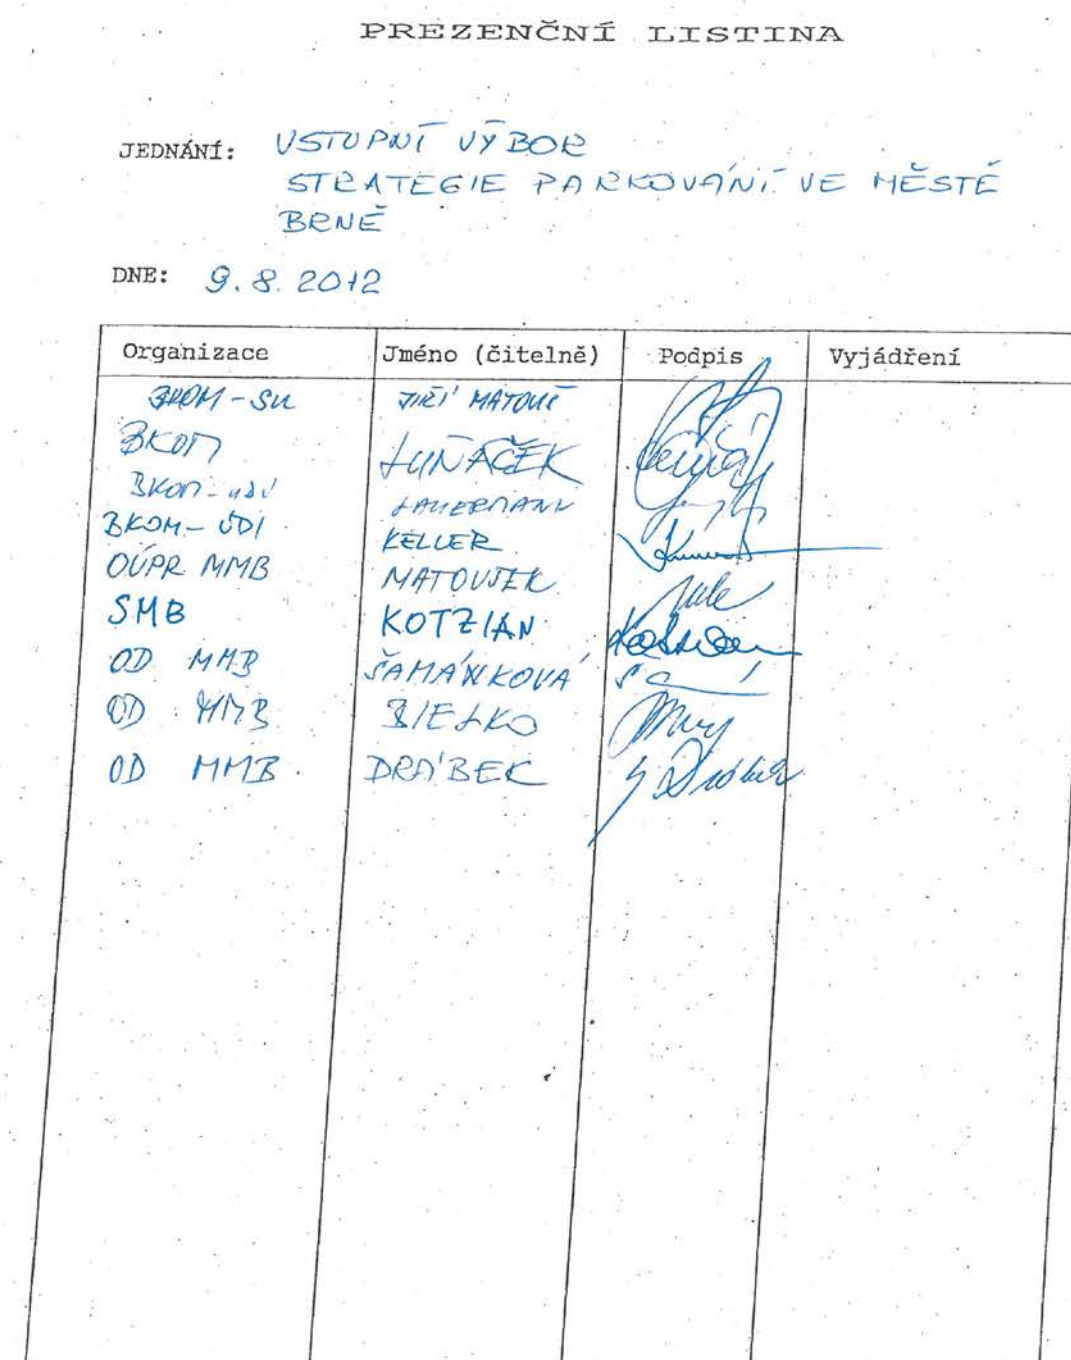 PREZENČNÍ LISTINA
JEDNÁNÍ: VSTUPNÍ VÝBOR
STRATEGIE PARKOVÁNÍ VE MĚSTĚ
BRNĚ
DNE: 9.8.2012
Organizace Jméno (čitelně) Podpis Vyjádření
BKOM-SU JIŘÍ MATOUŠ
BKOM LUŇÁČEK
BKOM- LAUERMANN
BKOM-ÚDI KELLER
OÚPR MMB MATOUŠEK
SMB KOTZIAN
OD MMB ŠAMÁNKOVÁ
OD MMB BIELKO
OD MMB DRÁBEK